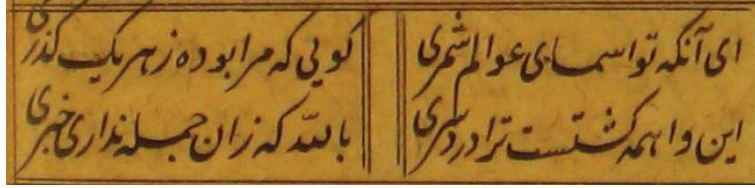 ای آنکه تو اسمای عوالم شمری
کویی که مرا بوده ز هر یک گذری
این واهمه کشتست ترا دردسری
بالله که زان جمله نداری خبری